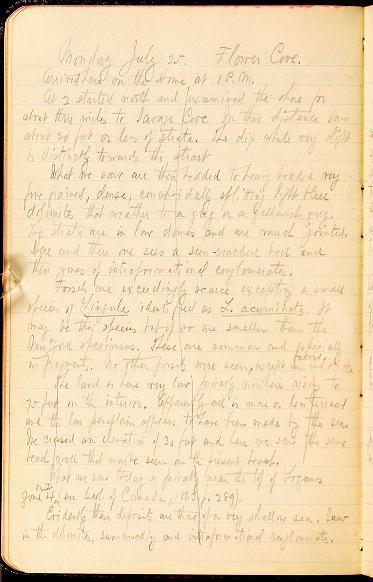 Monday July 25. Flower Cove.
Arrived here on the Home at 1 P.M.
At 2 started north and examined the shore for
about three miles to Savage Cove. In this distance saw
about 30 feet or less of strata. The dip while very slight
is distinctly towards the strait.
What we saw are thin bedded to heavy bedded very
fine grained, dense, conchoidally splitting light blue
dolomites that weather to a grey or a yellowish grey.
The strata are in low domes and are much jointed.
Here and there one sees a sun-cracked bed and
thin zones of intraformational conglomerates.
Fossils are exceedingly scarce excepting a small
species of Lingula identified as L. acuminata. It
may be this species but if so are smaller than the
specimens. These are common and
in fragments. No other fossils were seen, except in
The land is here very low, probably nowhere rising to
75 feet in the interior. Apparently all is more or less terraced
and the low peneplain appears to have been made by the sea.
We crossed an elevation of 30 feet and here we saw the same
beach gravel that may be seen on the present beach.
What we saw today is probably near the top of Logan's
zone 4, see Geol. of Canada, 1863, p. 289).
Evidently these deposits are those of a very shallow sea. Saw
in the dolomites, sun-cracking and intraformational conglomerates.